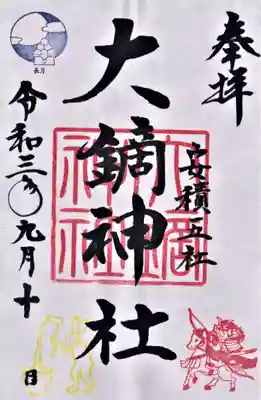 奉拝
安積五社
大鏑神社
令和三年九月十日
長月